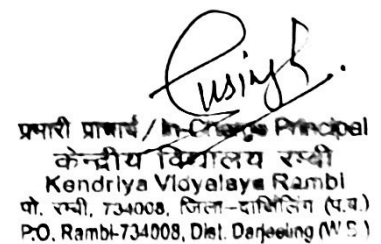 प्रभारी प्राचार्य / In-Charge Principal
केन्द्रीय विद्यालय रम्बी
Kendriya Vidyalaya Rambi
पो. रम्बी, 734008, जिला-दार्जिलिंग (प.व.)
P.O. Rambi-734008, Dist. Darjeeling (W.B.)